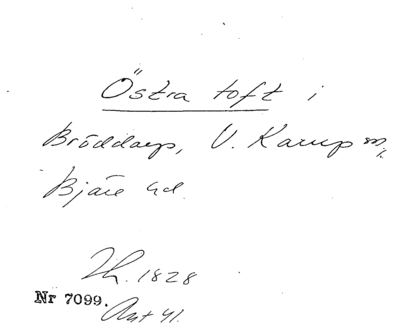 Östra toft i
Bröddarp, V. Karup sn,
Bjäre hd.
Th. 1828
Nr 7099.
Ant 41.